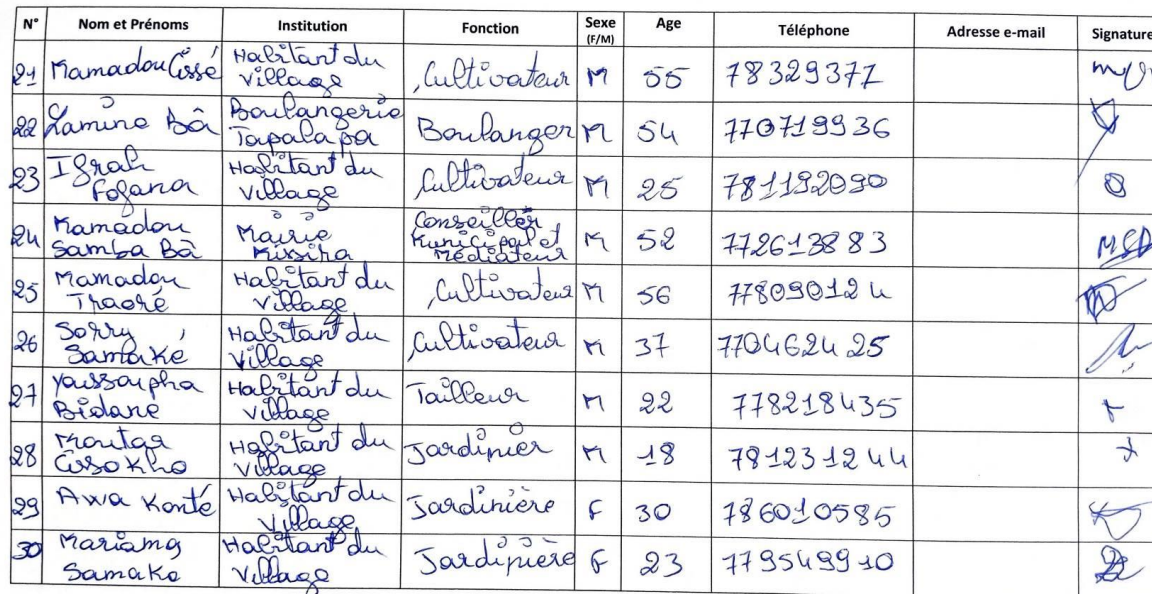 N° Nom et Prénoms Institution Fonction Sexe (F/M) Age Téléphone Adresse e-mail Signature
21 Mamadou Cissé Habitant du Village Cultivateur M 55 78329377
22 Lamine Bâ Boulangerie Tapalapa Boulanger M 54 770719936
23 Fofana Habitant du Village Cultivateur M 25 781192090
24 Mamadou Samba Bâ Mairie Missira Conseiller Municipal et Médiateur M 52 772613883 MSB
25 Mamadou Traoré Habitant du Village Cultivateur M 56 778090124
26 Sorry Samaké Habitant du Village Cultivateur M 37 770462425
27 Youssoupha Bidane Habitant du Village Tailleur M 22 778218435
28 Moutar Cissokho Habitant du Village Jardinier M 18 781231244
29 Awa Konté Habitant du Village Jardinière F 30 786010585
30 Mariama Samake Habitant du Village Jardinière F 23 779549910